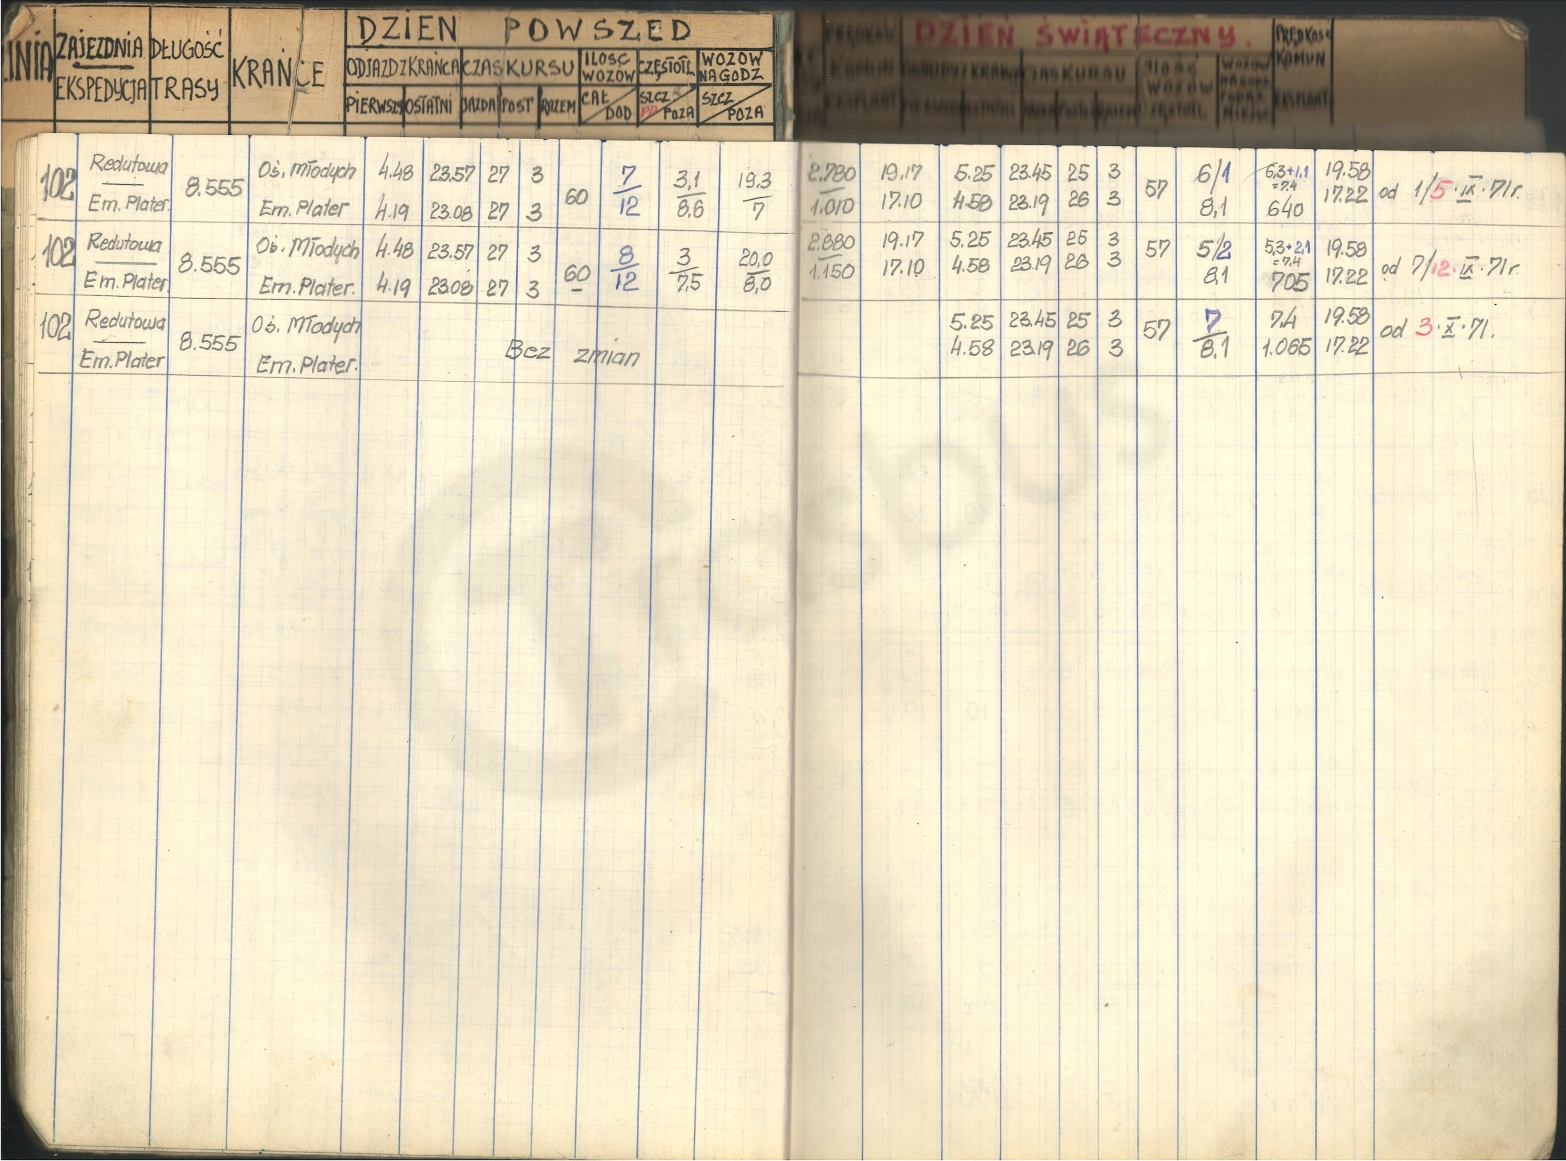 DZIEŃ POWSZED
DZIEŃ ŚWIĄTECZNY.
LINIA ZAJEZDNIA DŁUGOŚĆ KRAŃCE ODJAZD Z KRAŃCA CZAS KURSU ILOŚC WOZÓW CZĘSTOTL WOZÓW NA GODZ
EKSPEDYCJA TRASY PIERWSZY OSTATNI JAZDA POST RAZEM CAŁ DOD SZCZ POZA SZCZ POZA
102 Redutowa 8.555 Oś. Młodych 4.48 23.57 27 3 60 7 3,1 19.3 2.780 19.17 5.25 23.45 25 3 57 6/1 6,3+1,1 19.58 od 1/5·IX·71r.
=7.4
Em. Plater. Em. Plater 4.19 23.08 27 3 12 8,6 7 1.010 17.10 4.58 23.19 26 3 8,1 640 17.22
102 Redutowa 8.555 Oś. Młodych 4.48 23.57 27 3 60 8 3 20,0 2.880 19.17 5.25 23.45 25 3 57 5/2 5,3+2,1 19.58 od 7/12·IX·71r.
=7.4
Em. Plater Em. Plater. 4.19 23.08 27 3 12 7,5 8,0 1.150 17.10 4.58 23.19 26 3 8,1 705 17.22
102 Redutowa 8.555 Oś. Młodych Bez zmian 5.25 23.45 25 3 57 7 7.4 19.58 od 3·X·71.
Em. Plater Em. Plater. 4.58 23.19 26 3 8,1 1.065 17.22